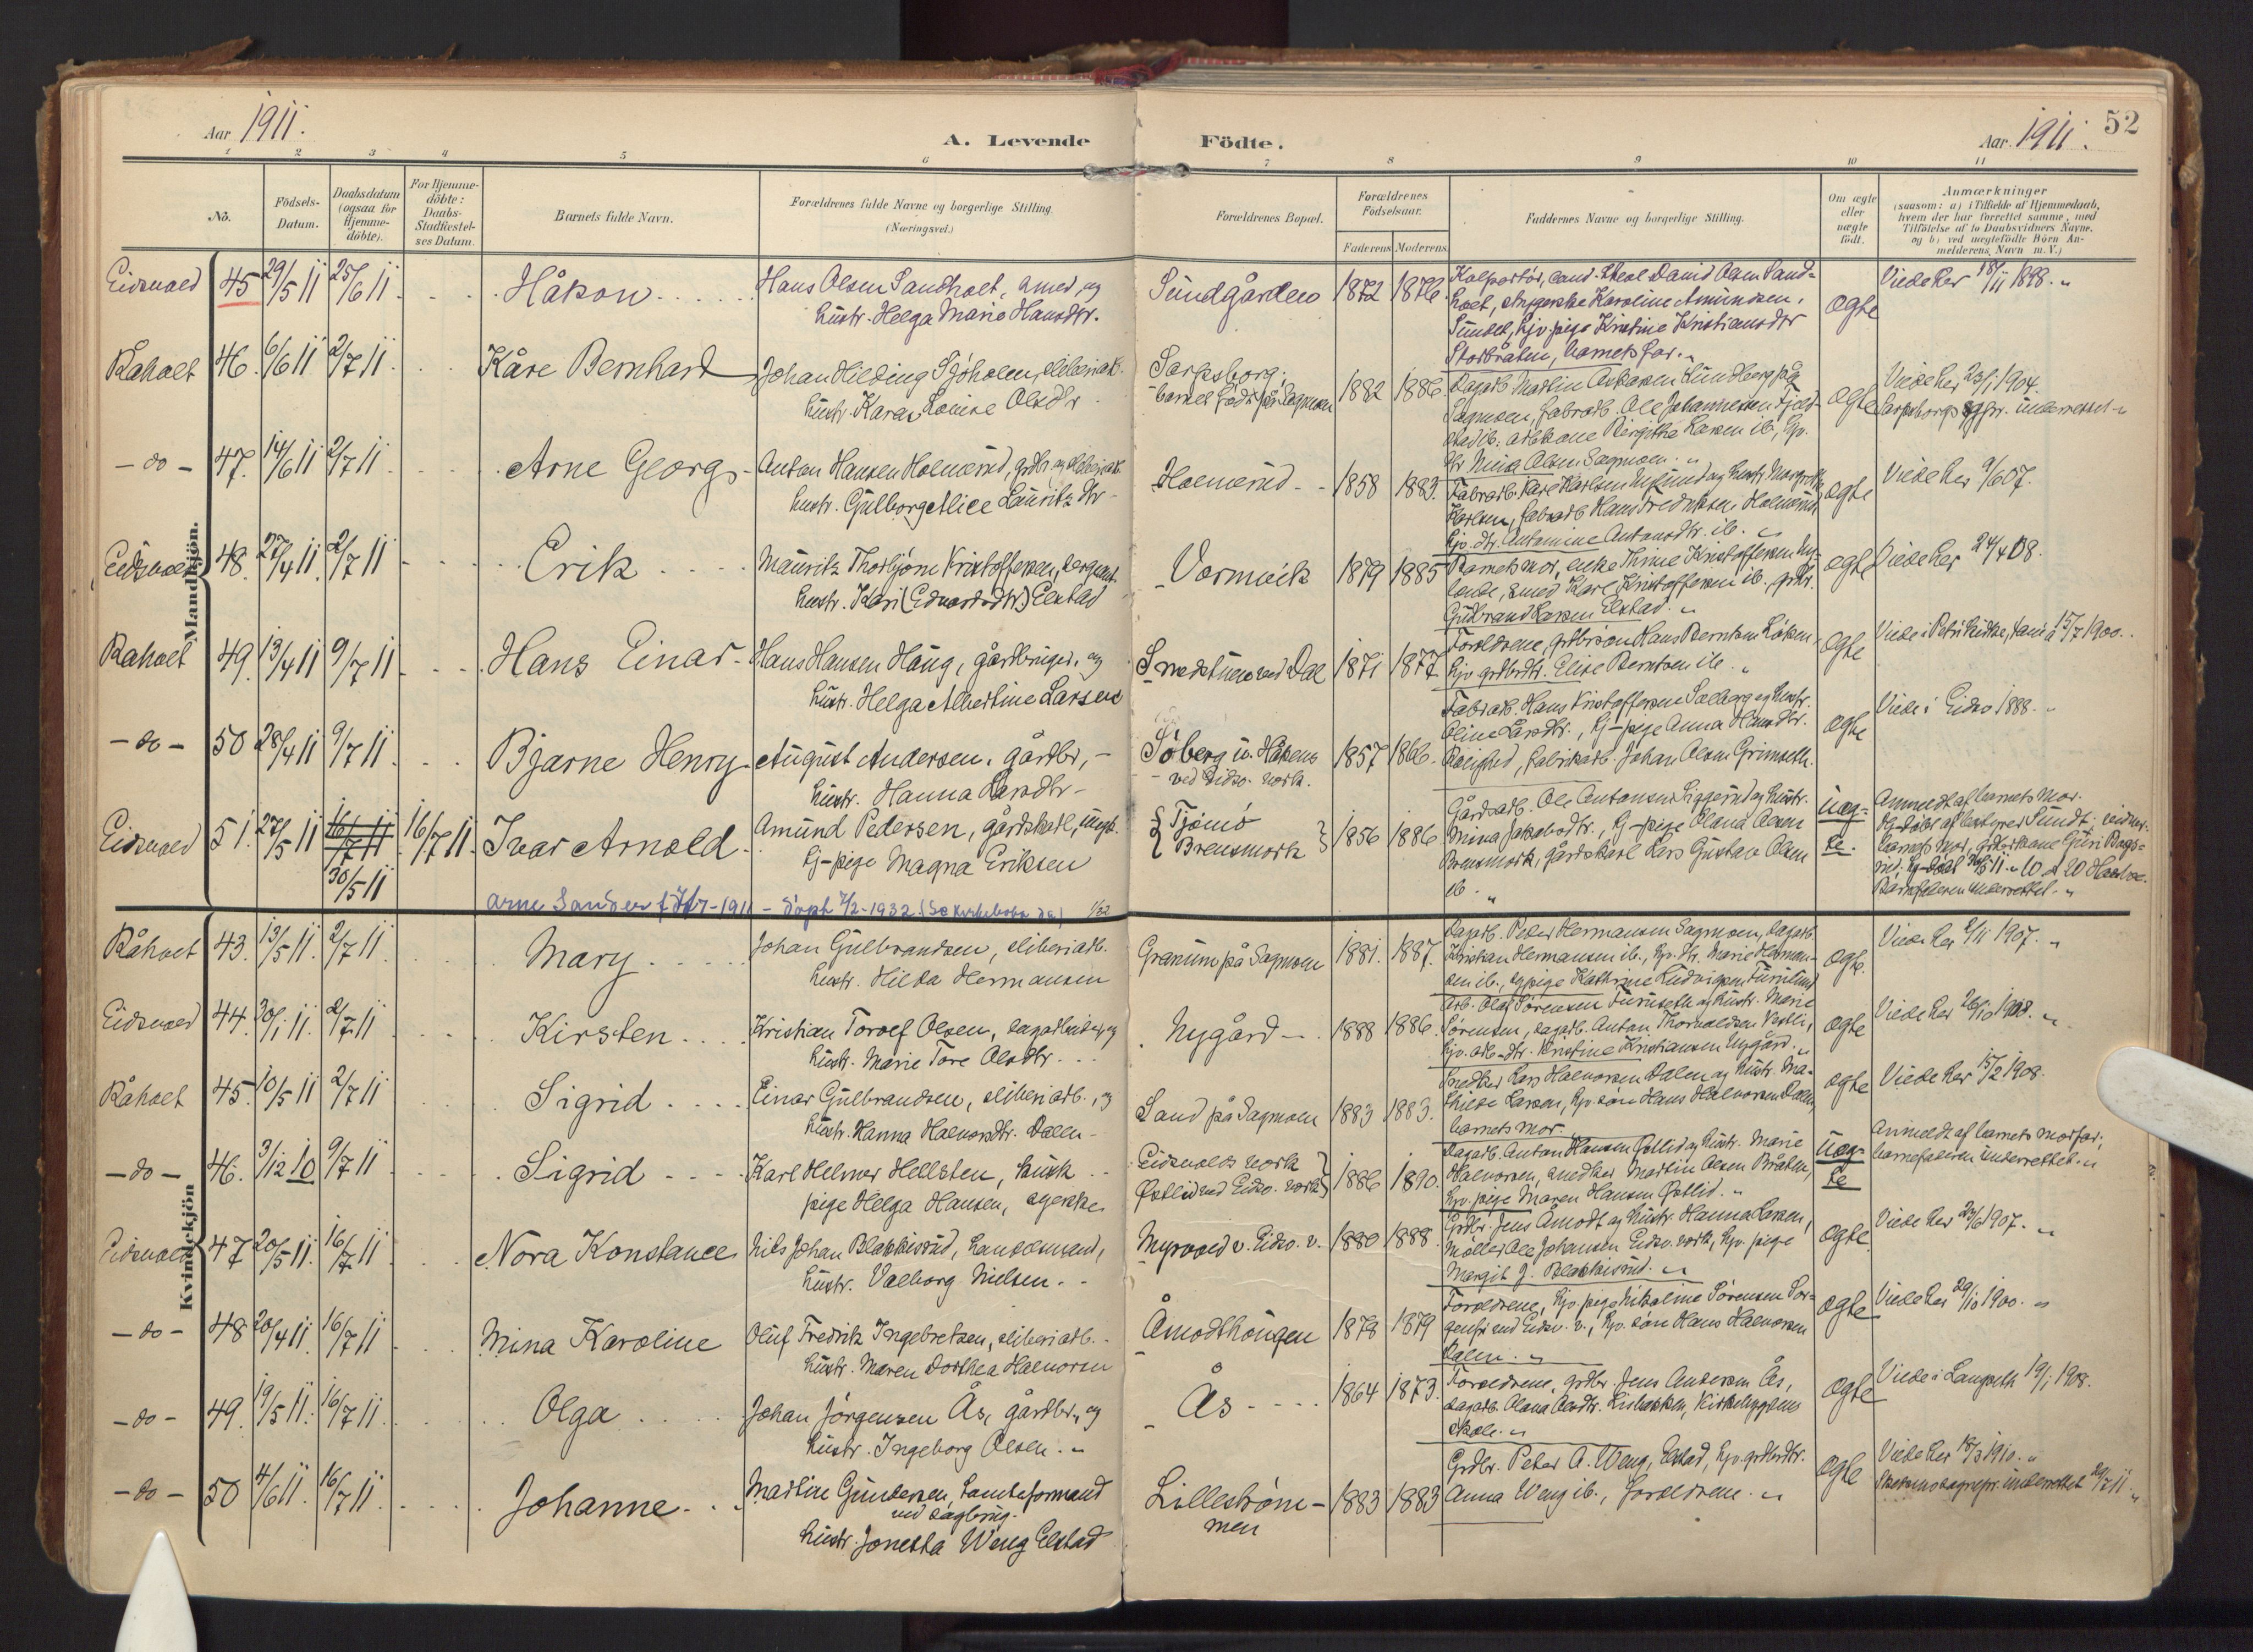 Aar 1911.
A. Levende Födte.
Aar 1911.
52
1 2 3 4 5 6 7 8 9 10 11
No.
Födsels-
Datum.
Daabsdatum
(ogsaa for
Hjemme-
döbte).
For Hjemme-
döbte:
Daabs-
Stadfæstel-
ses Datum.
Barnets fulde Navn.
Forældrenes fulde Navne og borgerlige Stilling
(Næringsvei.)
Forældrenes Bopæl.
Forældrenes
Födselsaar.
Faderens Moderens
Faddernes Navne og borgerlige Stilling.
Om ægte
eller
uægte
födt.
Anmærkninger
(saasom: a) i Tilfælde af Hjemmedaab,
hvem der har forrettet samme, med
Tilföielse af to Daabsvidners Navne,
og b) ved uægtefödte Börn An-
melderens Navn m. V.)
Mandkjön.
Eidsvold 45 29/5 11 25/6 11 Håkon
Hans Olsen Sandholt, smed, og
hustr. Helga Marie Hansdtr.
Sundgården 1872 1876
Kolportör, cand. theol. David Olsen Sand-
holt, Karoline Amundsen,
Sundet, hjv. pige Kristine Kristiansdtr
Storbråten, barnets far. "
ægte
Viede her 18/11 1898. "
Råholt 46. 6/6 11 2/7 11. Kåre Bernhard
Johan Hilding Sjöholm, sliberiarb.
hustr. Karen Louise Olsdtr.
Sarpsborg;
barnet födt på Sagmoen
1882 1886.
Dagarb. Martin Lundberg på
Sagmoen, fabrarb. Ole Johannessen Fjeld-
stad ib., Birgithe Larsen ib., hjv.
dtr Nina Olsen Sagmoen. "
ægte
Viede her 23/1 1904.
Sarpsborgs sgpr. underrettet. "
- do - 47. 14/6 11 2/7 11. Arne Georg
Anton Hansen Holmerud, grdbr. og sliberiarb.
hustr. Gulborg Alice Lauritzdtr.
Holmerud 1858 1883.
Fabrarb. Karl Karlsen og hustr. Margrethe
Karlsen, fabrarb. Hans Fredriksen Holmerud,
hjv. dtr. Antonine Antonsdtr. ib. "
ægte
Viede her 9/6 07.
Eidsvold 48. 27/4 11. 2/7 11 Erik
Mauritz Thorbjörn Kristoffersen, sergeant.
hustr. Kari (Edvardsdtr.) Elstad
Vormvik 1879 1885
Barnets mor, enke Thrine Kristoffersen Ny-
lende, smed Karl Kristoffersen ib., grdbr.
Gudbrand Larsen Elstad. "
ægte
Viede her 24/4 08.
Råholt 49. 13/4 11 9/7 11 Hans Einar
Hans Hansen Haug, gårdbruger, og
hustr. Helga Albertine Larsen
Smedstuen ved Dal 1871 1877
Forældrene, grdbrsön Hans Berntsen Löken,
hjv. grdbrdtr. Elise Berntsen ib. "
ægte
Viede i Petri kirke, 15/7 1900.
- do - 50 28/4 11 9/7 11. Bjarne Henry
August Andersen, gårdbr,
hustr. Hanna Larsdtr
Söberg u. Håkens
ved Eidsv. verk.
1857 1866.
Fabrarb. Hans Kristoffersen Solberg og hustr.
Oline Larsdtr., tj-pige Anna Hansdtr.
Rolighed, fabrikarb. Johan Olsen Grimseth.
ægte
Viede i Eidsv 1888.
Eidsvold 51. 27/5 11 16/7 11 30/5 11 16/7 11. Ivar Arnold
Amund Pedersen, gårdskarl, ungk.
tj-pige Magna Eriksen
Tjömö
Brensmork
1856 1886
Gårdarb. Ole Antonsen Liggerud og hustr.
Mina Jakobsdtr., tj-pige Olana Olsen
Brensmork, gårdskarl Lars Gustav Olsen
ib. "
uæg-
te.
Anmeldt af barnets mor.
Hj-döbt af Sundt; vidner:
barnets mor, Guri
Barnefaderen underrettet. "
Arne Sander f. 7/7-1911 - döpt 7/2-1932 (Se kirkeboka da) 1/32
Kvindekjön
Råholt 43. 13/5 11. 2/7 11. Mary
Johan Gulbrandsen, sliberiarb.
hustr. Hilda Hermansen
Granum på Sagmoen 1881. 1887.
Dagarb. Peder Hermansen Sagmoen, dagarb.
Kristian Hermansen ib., hjv. dtr. Marie Herman-
sen ib., sypige Kathrine Ludvigsen Furulund
ægte.
Viede her 2/11 1907. "
Eidsvold 44. 30/1 11. 2/7 11 Kirsten
Kristian Torolf Olsen, dagarbeider, og
hustr. Marie Tore Olsdtr.
Nygård 1888 1886.
Arb. Olaf Sörensen Furuseth og hustr. Marie
Sörensen, dagarb. Anton Thorvaldsen Vestli,
hjv. arb-dtr. Kristine Kristiansen Nygård. "
ægte
Viede her 26/10 1908. "
Råholt 45. 10/5 11 2/7 11 Sigrid
Einar Gulbrandsen, sliberiarb., og
hustr. Hanna Halvorsdtr. Dalen
Sand på Sagmoen 1883 1883.
Snedker Lars Halvorsen Dalen og hustr. Ma-
thilde Larsen, hjv. sön Hans Halvorsen Dalen,
barnets mor. "
ægte
Viede her 15/2 1908.
- do - 46. 3/12 10 9/7 11 Sigrid
Karl Helmer Hellsten,
pige Helga Hansen, syerske
Eidsvolds verk
Østlid ved Eidsv. verk
1886 1890.
Dagarb. Anton Hansen og hustr. Marie
Halvorsen, snedker Martin Olsen Bråten,
hjv. pige Maren Hansen Østlid. "
uæg-
te
Anmeldt af barnets morfar;
barnefaderen underrettet. "
Eidsvold 47 20/5 11. 16/7 11 Nora Konstance
Nils Johan Blakkisrud, handelsmand,
hustr. Valborg Nielsen.
Myrvold v. Eidsv. v. 1880 1888.
Grdbr. Jens Åmodt og hustr. Hanna Larsen,
Möller Ole Johansen Eidsv. verk, hjv. pige
Margit J. Blakkisrud. "
ægte.
Viede her 23/6 1907. "
- do - 48 20/4 11. 16/7 11 Mina Karoline
Oluf Fredrik Ingebretsen, sliberiarb.
hustr. Maren Dorthea Halvorsen
Åmodthaugen 1878 1879
Forældrene, hjv. pige Nikoline Sörensen Sor-
genfri ved Eidsv. v., hjv. sön Hans Halvorsen
Dalen. "
ægte
Viede her 29/10 1900. "
- do - 49. 19/5 11. 16/7 11. Olga
Johan Jörgensen Ås, gårdbr., og
hustr. Ingeborg Olsen. "
Ås 1864 1873.
Forældrene, grdbr. Jens Andersen Ås,
dagarb. Olana Olsdtr. Lisbakken, Kirkebygdens
skole. "
ægte
Viede i Langseth 19/1 1908.
- do - 50 4/6 11. 16/7 11. Johanne
Martin Gundersen, tomteformand
ved sagbrug.
hustr. Jonetta Weng Elstad
Lilleström-
men
1883 1883
Grdbr. Peter A. Weng, Elstad, hjv. grdbrdtr.
Anna Weng ib., forældrene. "
ægte
Viede her 18/3 1910. "
underrettet 29/7 11. "